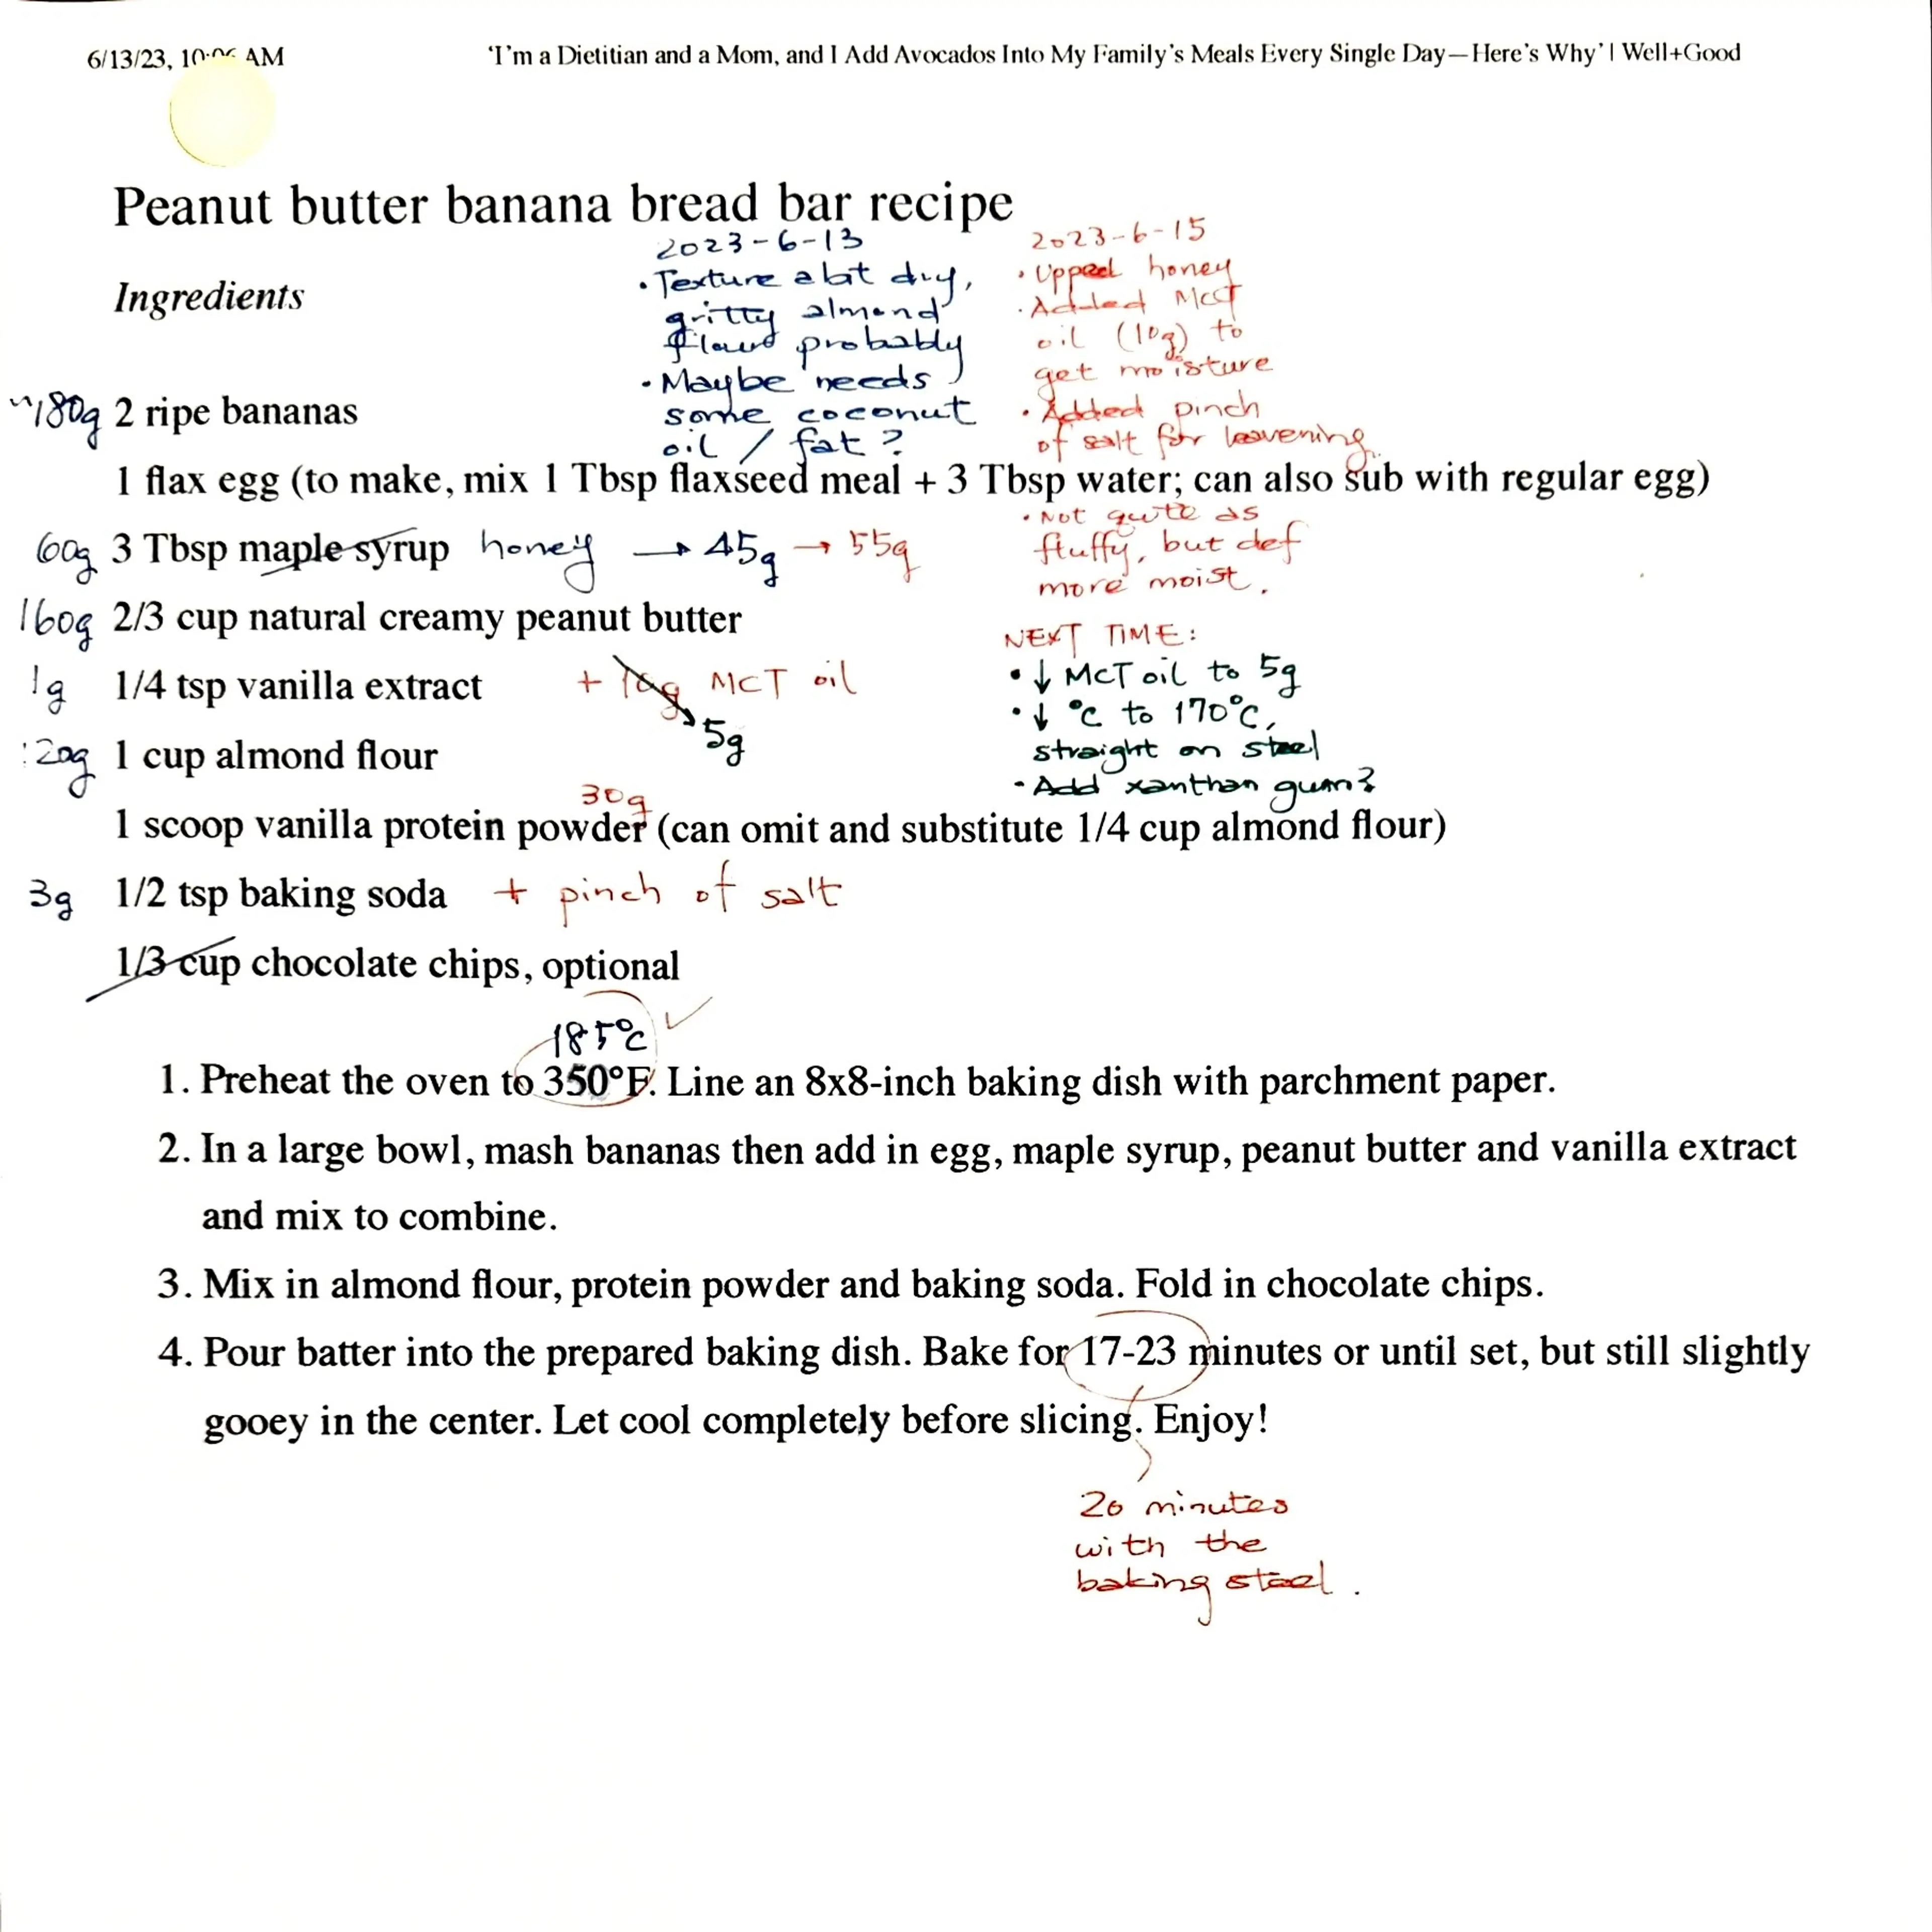 6/13/23, 10:06 AM
'I'm a Dietitian and a Mom, and I Add Avocados Into My Family's Meals Every Single Day—Here's Why' | Well+Good
Peanut butter banana bread bar recipe
2023-6-13
• Texture a bit dry,
gritty almond
flour probably
• Maybe needs
some coconut
oil / fat?
2023-6-15
• Upped honey
• Added MCT
oil (10g) to
get moisture
• Added pinch
of salt for leavening.
Ingredients
~180g 2 ripe bananas
1 flax egg (to make, mix 1 Tbsp flaxseed meal + 3 Tbsp water; can also sub with regular egg)
• Not quite as
fluffy, but def
more moist.
60g 3 Tbsp maple syrup honey → 45g → 55g
160g 2/3 cup natural creamy peanut butter
NEXT TIME:
• ↓ MCT oil to 5g
• ↓ °C to 170°C,
straight on steel
- Add xanthan gum?
1g 1/4 tsp vanilla extract + 10g MCT oil
5g
20g 1 cup almond flour
30g
1 scoop vanilla protein powder (can omit and substitute 1/4 cup almond flour)
3g 1/2 tsp baking soda + pinch of salt
1/3 cup chocolate chips, optional
185°C
1. Preheat the oven to 350°F. Line an 8x8-inch baking dish with parchment paper.
2. In a large bowl, mash bananas then add in egg, maple syrup, peanut butter and vanilla extract
and mix to combine.
3. Mix in almond flour, protein powder and baking soda. Fold in chocolate chips.
4. Pour batter into the prepared baking dish. Bake for 17-23 minutes or until set, but still slightly
gooey in the center. Let cool completely before slicing. Enjoy!
20 minutes
with the
baking steel.